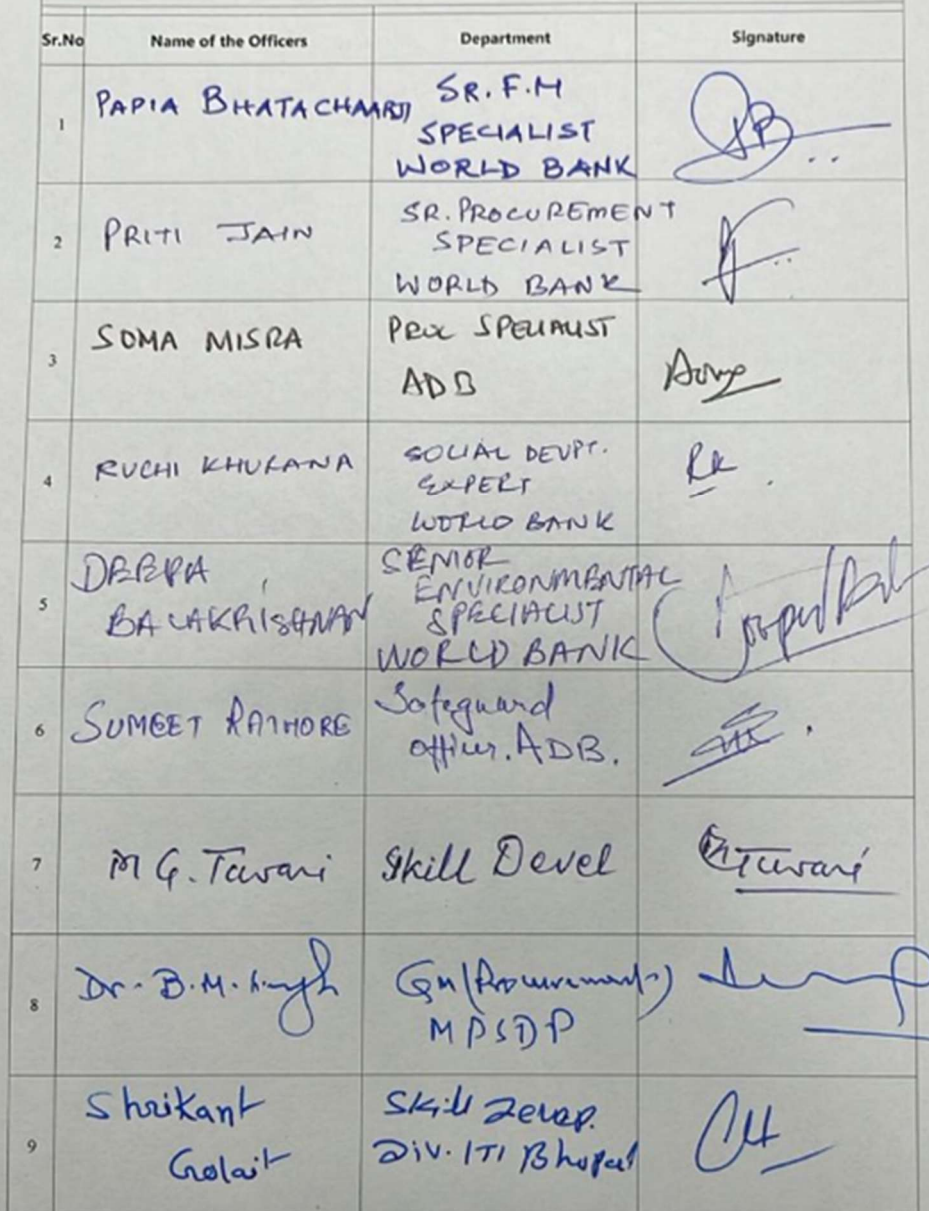 Sr.No Name of the Officers Department Signature
1 PAPIA BHATACHAARJI SR. F.M
SPECIALIST
WORLD BANK
2 PRITI JAIN SR. PROCUREMENT
SPECIALIST
WORLD BANK
3 SOMA MISRA PROC SPECIALIST
ADB
4 RUCHI KHURANA SOCIAL DEVPT.
EXPERT
WORLD BANK
RK
5 DEEPA
BALAKRISHNAN
SENIOR
ENVIRONMENTAL
SPECIALIST
WORLD BANK
6 SUMEET RATHORE Safeguard
officer. ADB.
7 M G. Tiwari Skill Devel
8 Dr. B.M. Singh GM (Procurement)
MPSDP
9 Shrikant
Golait
Skill Develop.
Div. ITI Bhopal